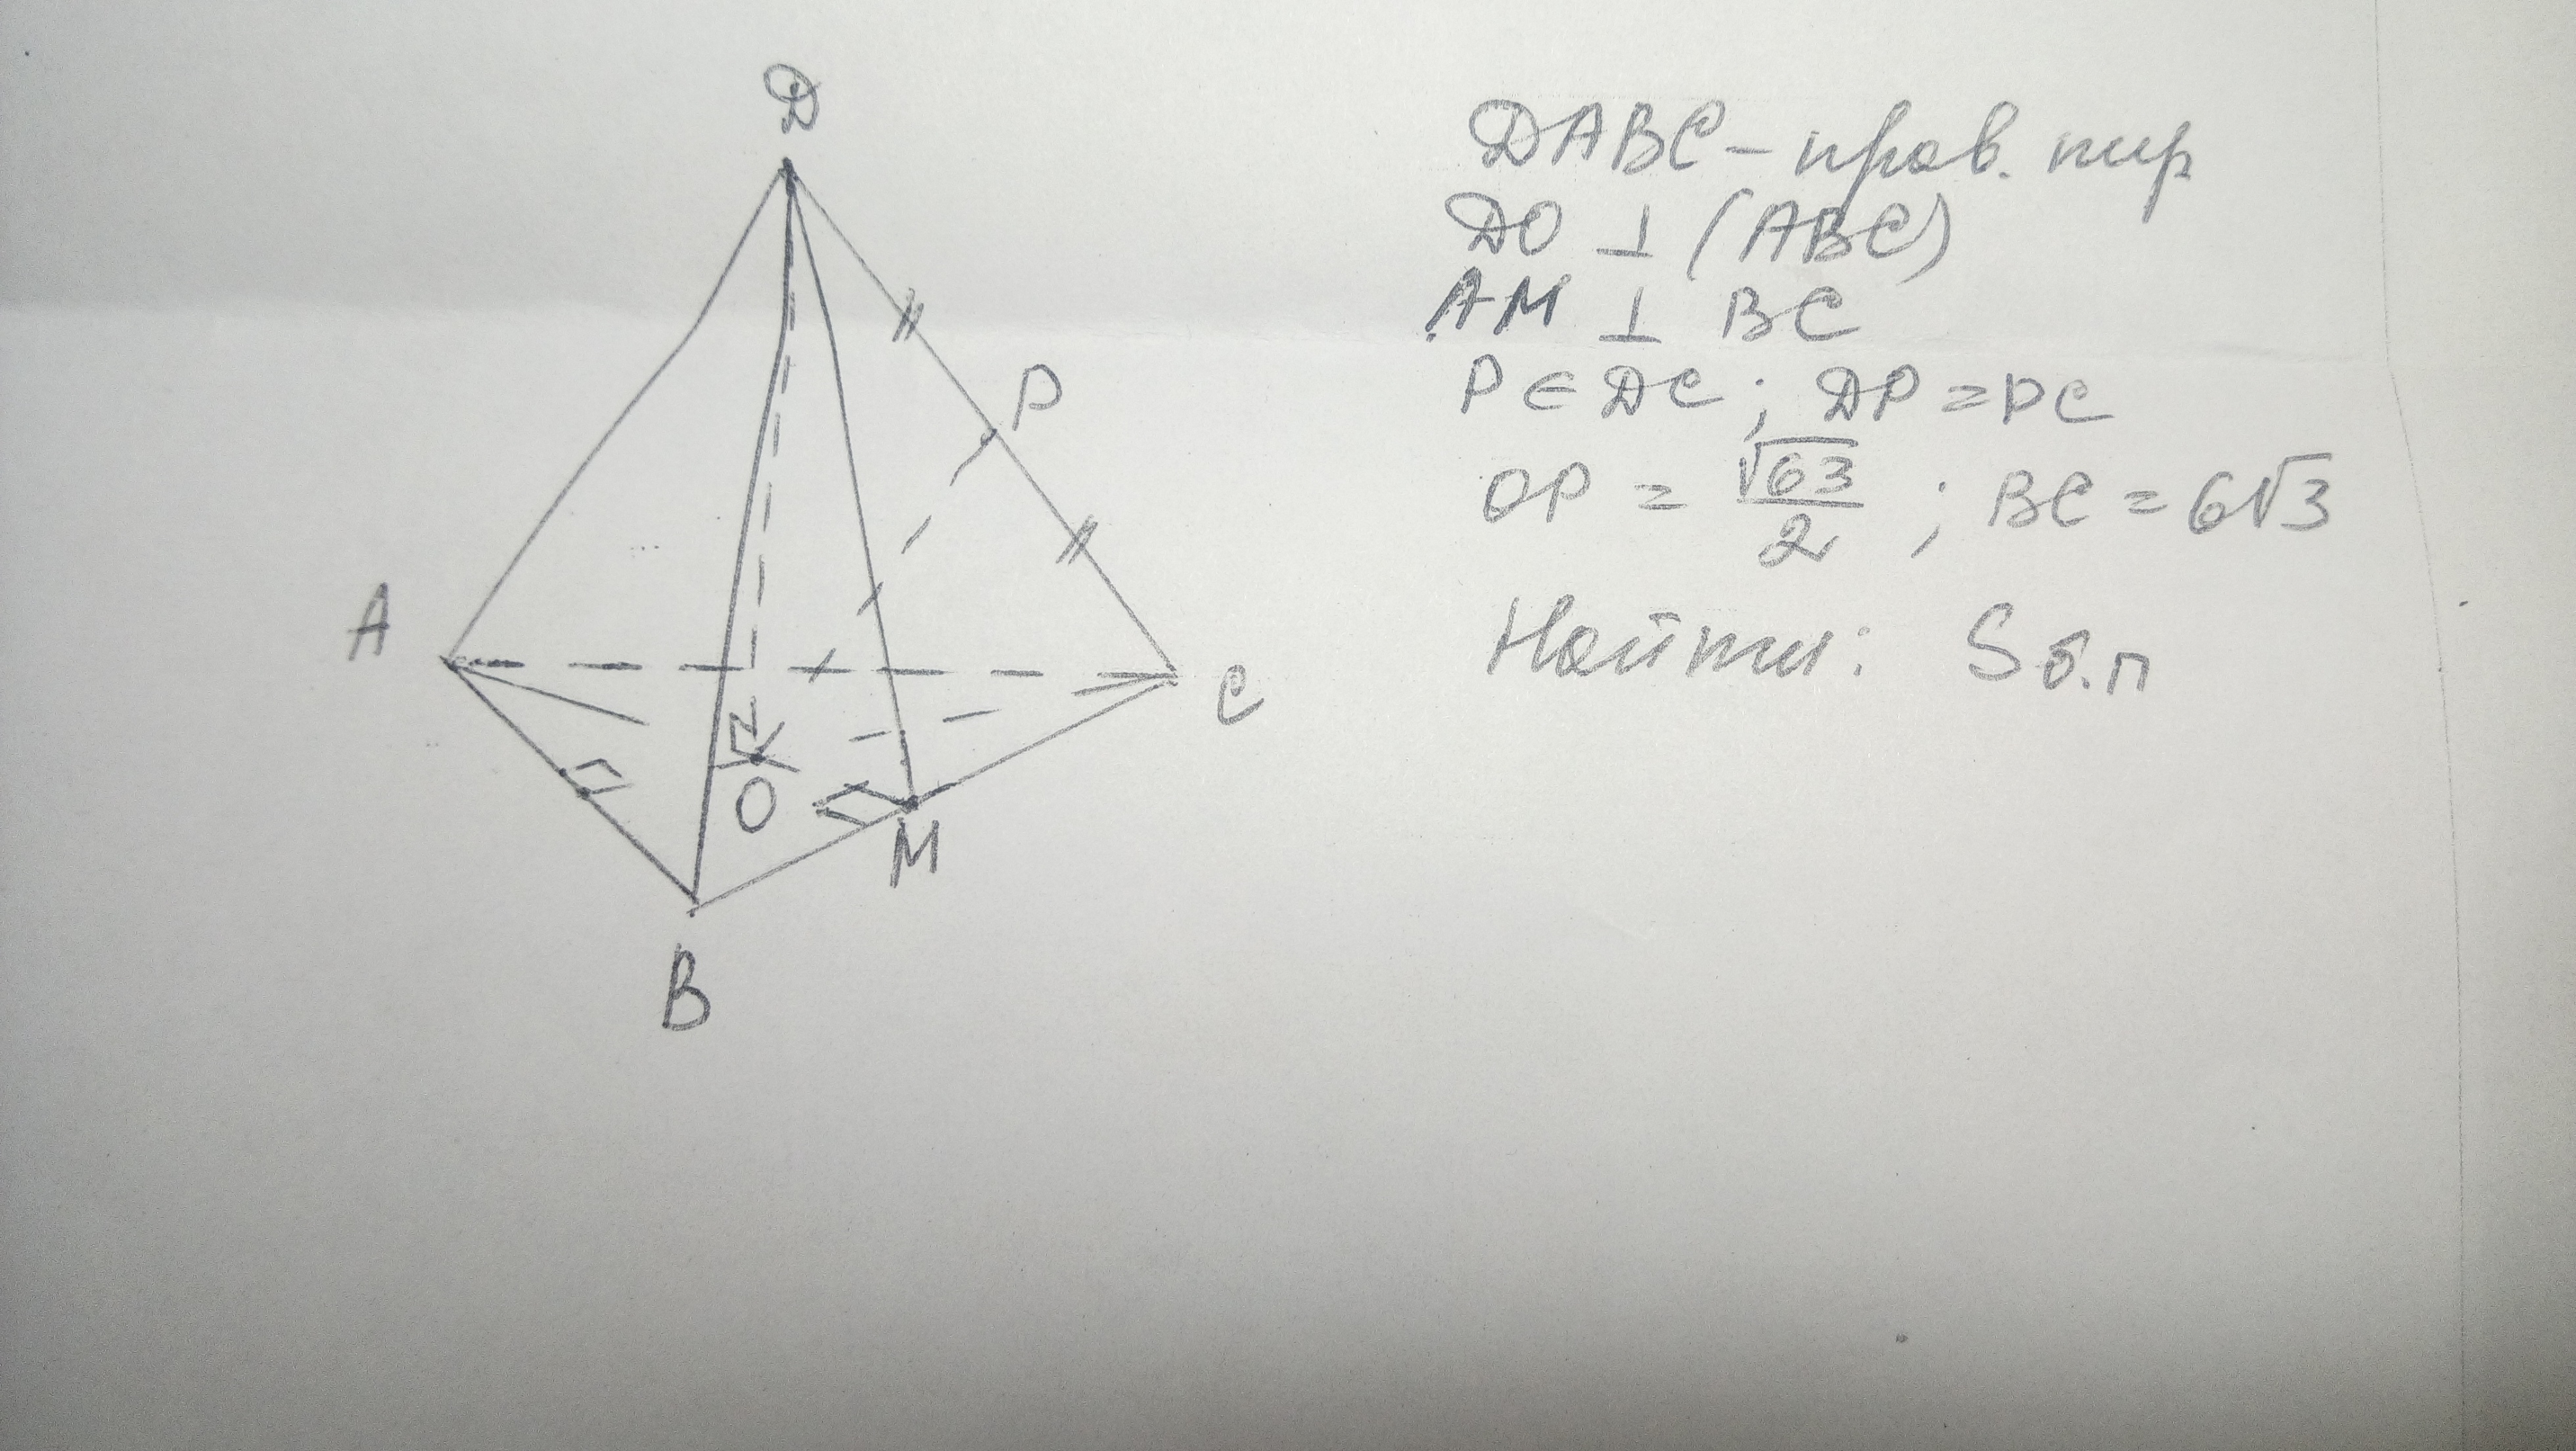 D
P
A
C
O
M
B
DABC - прав. пир
DO ⊥ (ABC)
AM ⊥ BC
P ∈ DC ; DP = PC
OP = √63/2 ; BC = 6√3
Найти: Sб.п